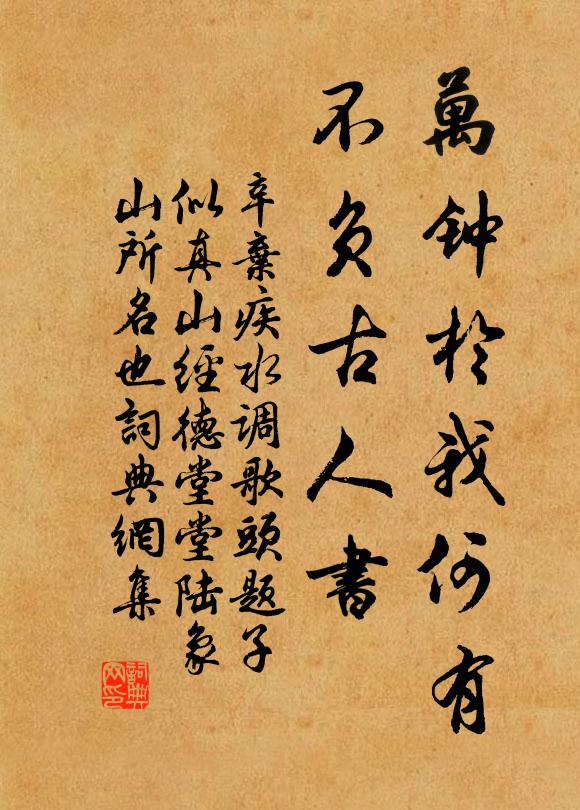 萬钟於我何有
不負古人書
辛棄疾水调歌頭题子
似真山經德堂堂陆象
山所名也詞典網集
詞典网印